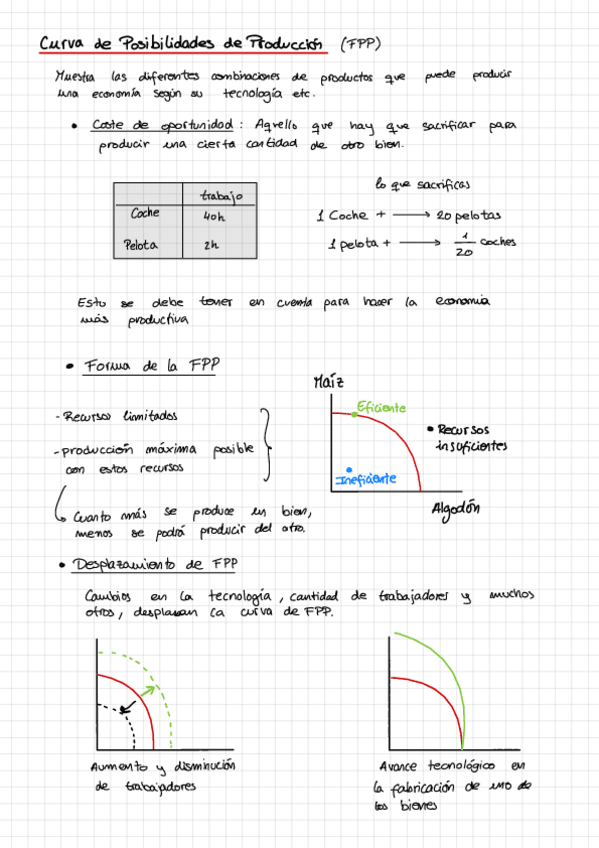 Curva de Posibilidades de Producción (FPP)
Muestra las diferentes combinaciones de productos que puede producir
una economía según su tecnología etc.
• Coste de oportunidad: Aquello que hay que sacrificar para
producir una cierta cantidad de otro bien.
trabajo
Coche 40h
Pelota 2h
lo que sacrificas
1 Coche + → 20 pelotas
1 pelota + → 1/20 coches
Esto se debe tener en cuenta para hacer la economía
más productiva
• Forma de la FPP
- Recursos limitados
- producción máxima posible
con estos recursos
Cuanto más se produce un bien,
menos se podrá producir del otro.
Maíz
Eficiente
• Recursos
insuficientes
Ineficiente
Algodón
• Desplazamiento de FPP
Cambios en la tecnología, cantidad de trabajadores y muchos
otros, desplazan la curva de FPP.
Aumento y disminución
de trabajadores
Avance tecnológico en
la fabricación de uno de
los bienes